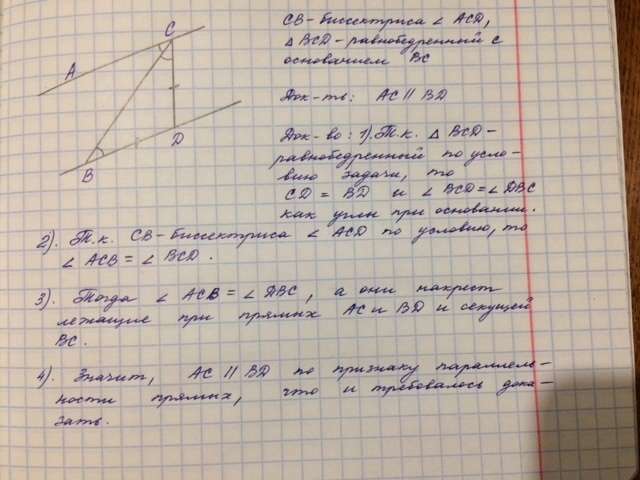 C
A
D
B
CB - биссектриса ∠ ACD,
△ BCD - равнобедренный с
основанием BC
Док-ть: AC ∥ BD
Док-во: 1). Т.к. △ BCD -
равнобедренный по усло-
вию задачи, то
CD = BD и ∠ BCD = ∠ DBC
как углы при основании.
2). Т.к. CB - биссектриса ∠ ACD по условию, то
∠ ACB = ∠ BCD.
3). Тогда ∠ ACB = ∠ DBC, а они накрест
лежащие при прямых AC и BD и секущей
BC.
4). Значит, AC ∥ BD по признаку параллель-
ности прямых, что и требовалось дока-
зать.